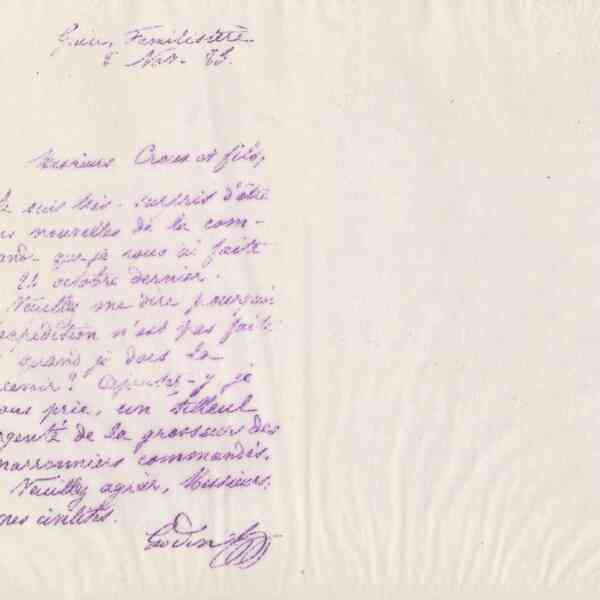 Guise, Familistère
8 Nov. 83.
Messieurs Croux et fils,
Je suis très-surpris d'être
ns nouvelles de la com-
ande que je vous ai faite
21 octobre dernier.
Veuillez me dire pourquoi
expédition n'est pas faite
quand je dois la
cevoir? Ajoutez-y, je
ous prie, un tilleul
rgenté de la grosseur des
marronniers commandés.
Veuillez agréer, Messieurs,
mes civilités.
Godin